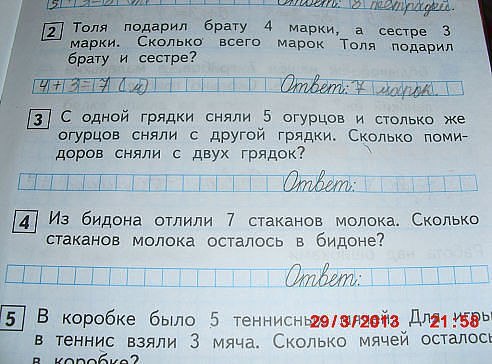 5+3=8 Ответ: 8 тетрадей.
2 Толя подарил брату 4 марки, а сестре 3
марки. Сколько всего марок Толя подарил
брату и сестре?
4+3=7 (м) Ответ: 7 марок.
3 С одной грядки сняли 5 огурцов и столько же
огурцов сняли с другой грядки. Сколько поми-
доров сняли с двух грядок?
Ответ:
4 Из бидона отлили 7 стаканов молока. Сколько
стаканов молока осталось в бидоне?
Ответ:
5 В коробке было 5 теннисных мячей. Для игры
29/3/2013 21:58
в теннис взяли 3 мяча. Сколько мячей осталось
в коробке?